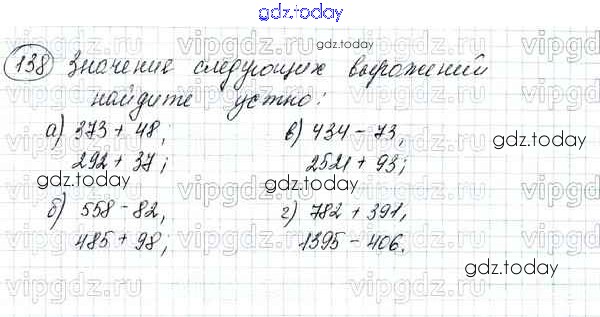 gdz.today
138 Значение следующих выражений
найдите устно:
а) 373 + 48;
292 + 37;
б) 558 - 82,
485 + 98;
в) 434 - 73,
2521 + 93;
г) 782 + 391,
1395 - 406.
gdz.today
gdz.today
gdz.today
gdz.today
gdz.today
vipgdz.com